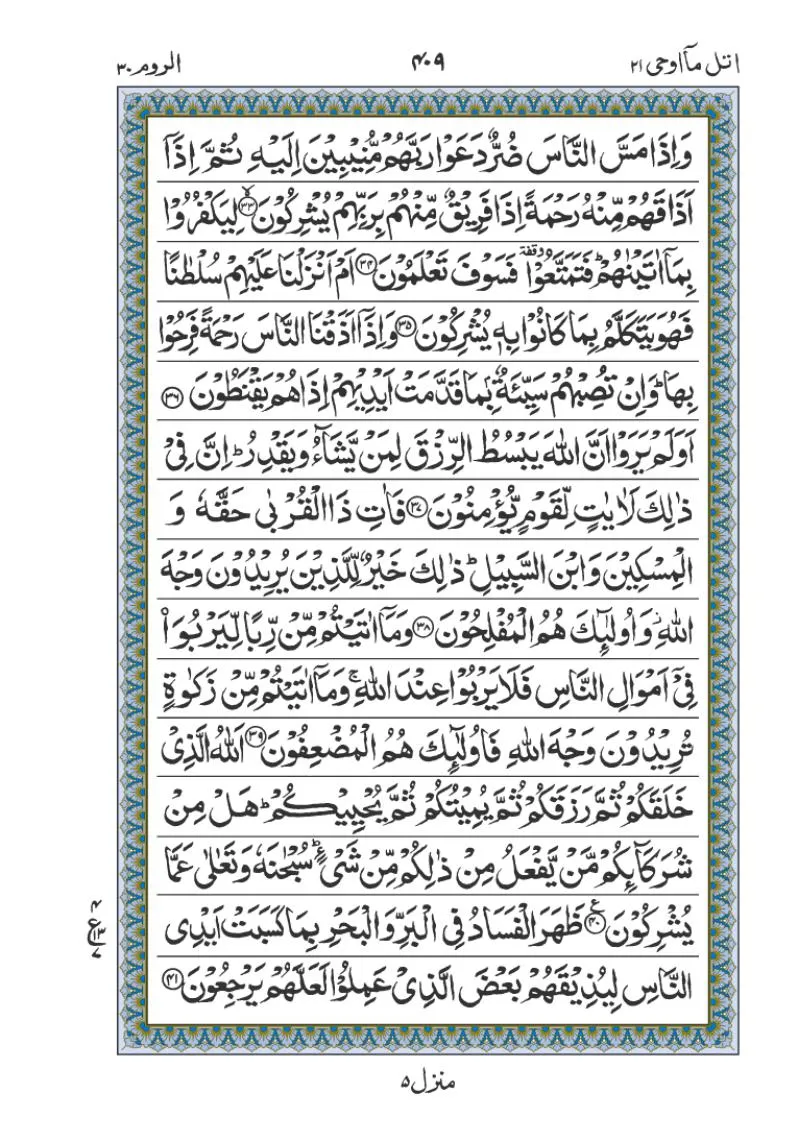 اتل مآاوحی ۲۱
۴۰۹
الروم ۳۰
وَاِذَا مَسَّ النَّاسَ ضُرٌّ دَعَوْا رَبَّهُمْ مُّنِيْبِيْنَ اِلَيْهِ ثُمَّ اِذَاۤ
اَذَاقَهُمْ مِّنْهُ رَحْمَةً اِذَا فَرِيْقٌ مِّنْهُمْ بِرَبِّهِمْ يُشْرِكُوْنَ ۙ﴿۳۳﴾ لِيَكْفُرُوْا
بِمَاۤ اٰتَيْنٰهُمْ ؕ فَتَمَتَّعُوْا ۥ وقفة فَسَوْفَ تَعْلَمُوْنَ ﴿۳۴﴾ اَمْ اَنْزَلْنَا عَلَيْهِمْ سُلْطٰنًا
فَهُوَ يَتَكَلَّمُ بِمَا كَانُوْا بِهٖ يُشْرِكُوْنَ ﴿۳۵﴾ وَاِذَاۤ اَذَقْنَا النَّاسَ رَحْمَةً فَرِحُوْا
بِهَا ؕ وَاِنْ تُصِبْهُمْ سَيِّئَةٌۢ بِمَا قَدَّمَتْ اَيْدِيْهِمْ اِذَا هُمْ يَقْنَطُوْنَ ﴿۳۶﴾
اَوَلَمْ يَرَوْا اَنَّ اللّٰهَ يَبْسُطُ الرِّزْقَ لِمَنْ يَّشَآءُ وَيَقْدِرُ ؕ اِنَّ فِيْ
ذٰلِكَ لَاٰيٰتٍ لِّقَوْمٍ يُّؤْمِنُوْنَ ﴿۳۷﴾ فَاٰتِ ذَا الْقُرْبٰى حَقَّهٗ وَ
الْمِسْكِيْنَ وَابْنَ السَّبِيْلِ ؕ ذٰلِكَ خَيْرٌ لِّلَّذِيْنَ يُرِيْدُوْنَ وَجْهَ
اللّٰهِ ؗ وَاُولٰٓئِكَ هُمُ الْمُفْلِحُوْنَ ﴿۳۸﴾ وَمَاۤ اٰتَيْتُمْ مِّنْ رِّبًا لِّيَرْبُوَا۠
فِيْۤ اَمْوَالِ النَّاسِ فَلَا يَرْبُوْا عِنْدَ اللّٰهِ ۚ وَمَاۤ اٰتَيْتُمْ مِّنْ زَكٰوةٍ
تُرِيْدُوْنَ وَجْهَ اللّٰهِ فَاُولٰٓئِكَ هُمُ الْمُضْعِفُوْنَ ﴿۳۹﴾ اَللّٰهُ الَّذِيْ
خَلَقَكُمْ ثُمَّ رَزَقَكُمْ ثُمَّ يُمِيْتُكُمْ ثُمَّ يُحْيِيْكُمْ ؕ هَلْ مِنْ
شُرَكَآئِكُمْ مَّنْ يَّفْعَلُ مِنْ ذٰلِكُمْ مِّنْ شَيْءٍ ؕ سُبْحٰنَهٗ وَتَعٰلٰى عَمَّا
يُشْرِكُوْنَ ﴿۴۰﴾ ع ظَهَرَ الْفَسَادُ فِي الْبَرِّ وَالْبَحْرِ بِمَا كَسَبَتْ اَيْدِي
النَّاسِ لِيُذِيْقَهُمْ بَعْضَ الَّذِيْ عَمِلُوْا لَعَلَّهُمْ يَرْجِعُوْنَ ﴿۴۱﴾
۴
ع ۱۳
۷
منزل ۵